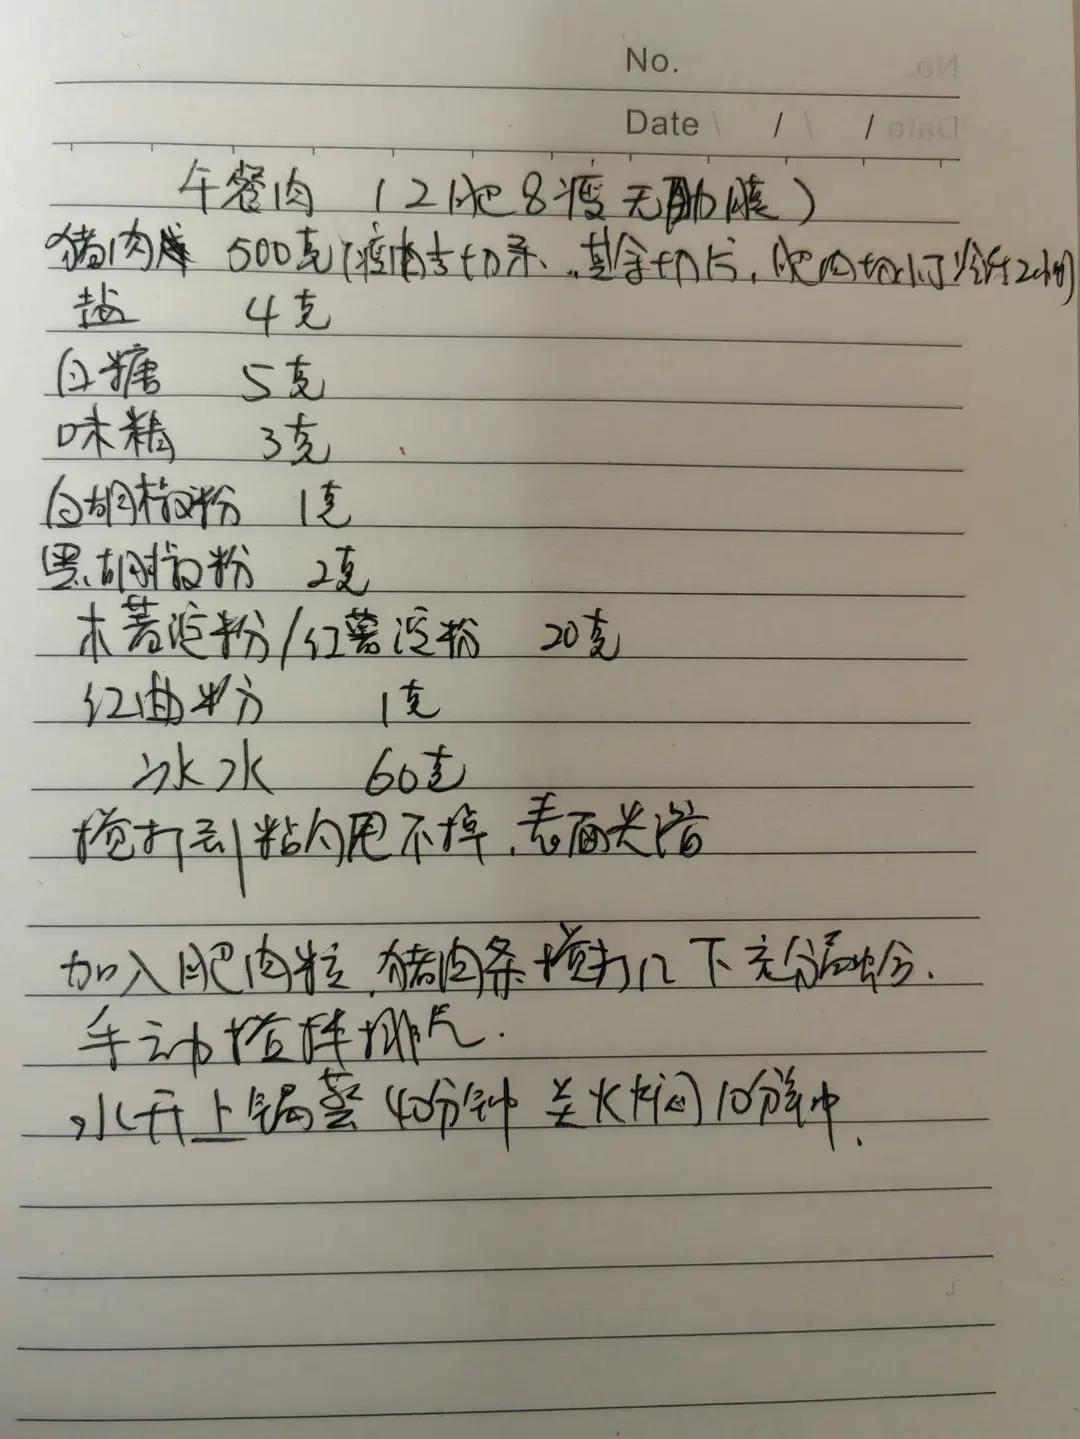 No.
Date / /
午餐肉 (2肥8瘦无筋膜)
猪肉 500克(瘦肉 切条、其余切片,肥肉切小丁冷冻2小时)
盐 4克
白糖 5克
味精 3克
白胡椒粉 1克
黑胡椒粉 2克
木薯淀粉/红薯淀粉 20克
红曲粉 1克
冰水 60克
搅打到粘勺甩不掉,表面光滑
加入肥肉粒,猪肉条搅打几下充分融合.
手动搅拌排气.
水开上锅蒸40分钟 关火焖10分钟.